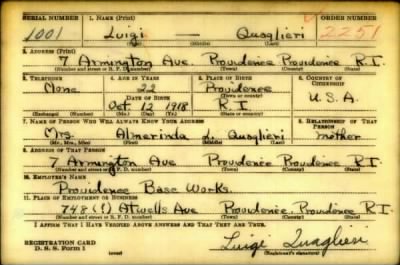 SERIAL NUMBER 1. NAME (Print) ORDER NUMBER
1001 Luigi — Quaglieri 2251
(First) (Middle) (Last)
2. ADDRESS (Print)
7 Armington Ave. Providence Providence R.I.
(Number and street or R. F. D. number) (Town) (County) (State)
3. TELEPHONE 4. AGE IN YEARS 5. PLACE OF BIRTH 6. COUNTRY OF CITIZENSHIP
None 22 Providence
DATE OF BIRTH (Town or county)
Oct 12 1918 R.I U.S.A.
(Exchange) (Number) (Mo.) (Day) (Yr.) (State or country)
7. NAME OF PERSON WHO WILL ALWAYS KNOW YOUR ADDRESS 8. RELATIONSHIP OF THAT PERSON
Mrs. Almerinda L. Quaglieri mother
(Mr., Mrs., Miss) (First) (Middle) (Last)
9. ADDRESS OF THAT PERSON
7 Armington Ave Providence Providence R.I.
(Number and street or R. F. D. number) (Town) (County) (State)
10. EMPLOYER'S NAME
Providence Base Works.
11. PLACE OF EMPLOYMENT OR BUSINESS
748 (?) Atwells Ave Providence, Providence R.I.
(Number and street or R. F. D. number) (Town) (County) (State)
I AFFIRM THAT I HAVE VERIFIED ABOVE ANSWERS AND THAT THEY ARE TRUE.
REGISTRATION CARD
D. S. S. Form 1 (over) Luigi Quaglieri
(Registrant's signature)